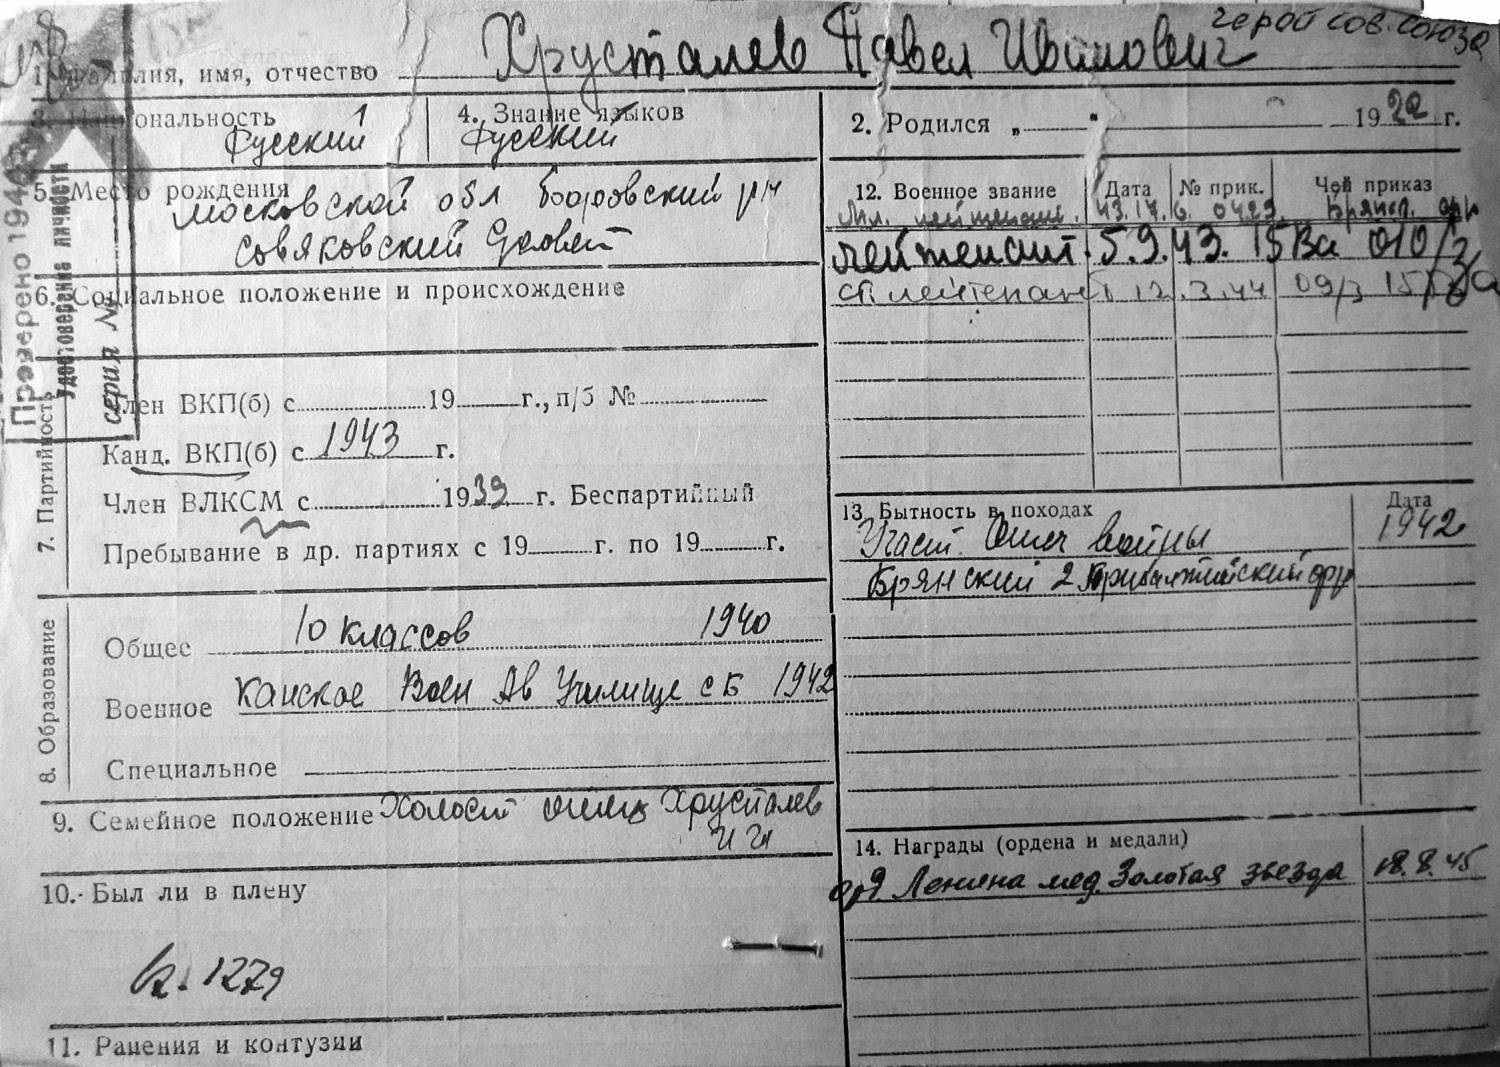 герой сов. союза
1. Фамилия, имя, отчество Хрусталев Павел Иванович
3. Национальность Русский
4. Знание языков Русский
2. Родился „ “ 1922 г.
5. Место рождения Московской обл Боровский рн
совяковский
6. Социальное положение и происхождение
Проверено 194
Удостоверение личности
серия №
12. Военное звание Дата № прик. Чей приказ
Мл. лейтенант. 43.17.6. 0423 Брянск. фр
лейтенант 5.9.43. 15Ва 010/з
ст лейтенант 12.3.44 09/з 15Ва
7. Партийность
Член ВКП(б) с 19 г., п/б №
Канд. ВКП(б) с 1943 г.
Член ВЛКСМ с 1939 г. Беспартийный
Пребывание в др. партиях с 19 г. по 19 г.
13. Бытность в походах Дата
Участ. Отеч войны 1942
Брянский 2 Прибалтийский фр
8. Образование
Общее 10 классов 1940
Военное Канское Воен Ав Училище с Б 1942
Специальное
9. Семейное положение Холост отец Хрусталев
10. Был ли в плену
14. Награды (ордена и медали)
орд Ленина мед. Золотая звезда 18.8.45
1279
11. Ранения и контузии